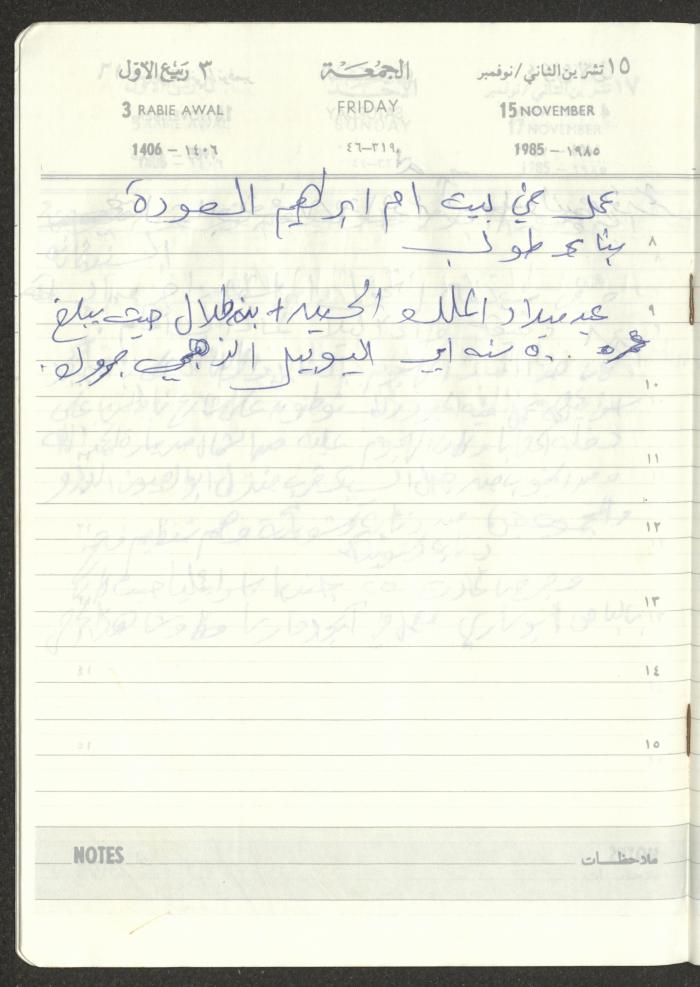 ١٥ تشرين الثاني/نوفمبر الجمعة ٣ ربيع الاول
15 NOVEMBER FRIDAY 3 RABIE AWAL
1985 – ١٩٨٥ ٣١٩–٤٦ 1406 – ١٤٠٦
عمل في بيت ام ابراهيم العودة
بناء طوب
٨
عيد ميلاد الملك الحسين بن طلال حيث يبلغ
٩
عمره ٥٠ سنه اي اليوبيل الذهبي
١٠
١١
١٢
١٣
١٤
١٥
NOTES ملاحظات